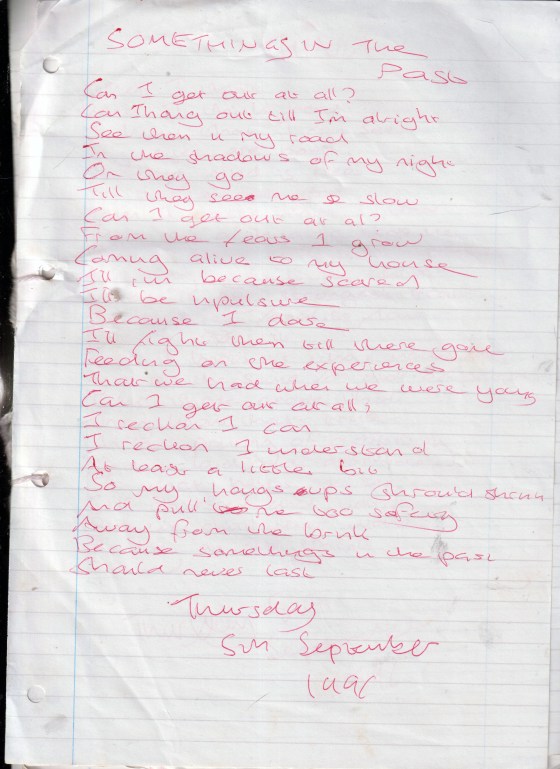 SOMETHINGS IN THE
PAST
Can I get out at all?
Can I hang out till I'm alright
See them in my road
In the shadows of my night
On they go
Till they see me so slow
Can I get out at al?
From the fears I grow
Coming alive to my house
I'll because scared
I'll be inpulsive
Because I dare
I'll fight them till there gone
Feeding on the experiences
That we had when we were young
Can I get out at all?
I reckon I can
I reckon I understand
At least a little bit
So my hangs ups should shrink
And pull me too safety
Away from the brink
Because somethings in the past
Should never last
Thursday
5th September
1996